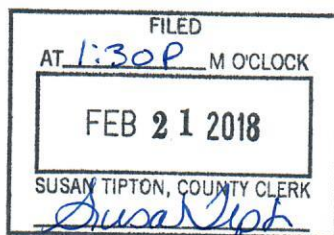 FILED
AT 1:30P M O'CLOCK
FEB 21 2018
SUSAN TIPTON, COUNTY CLERK
Susan Tipton